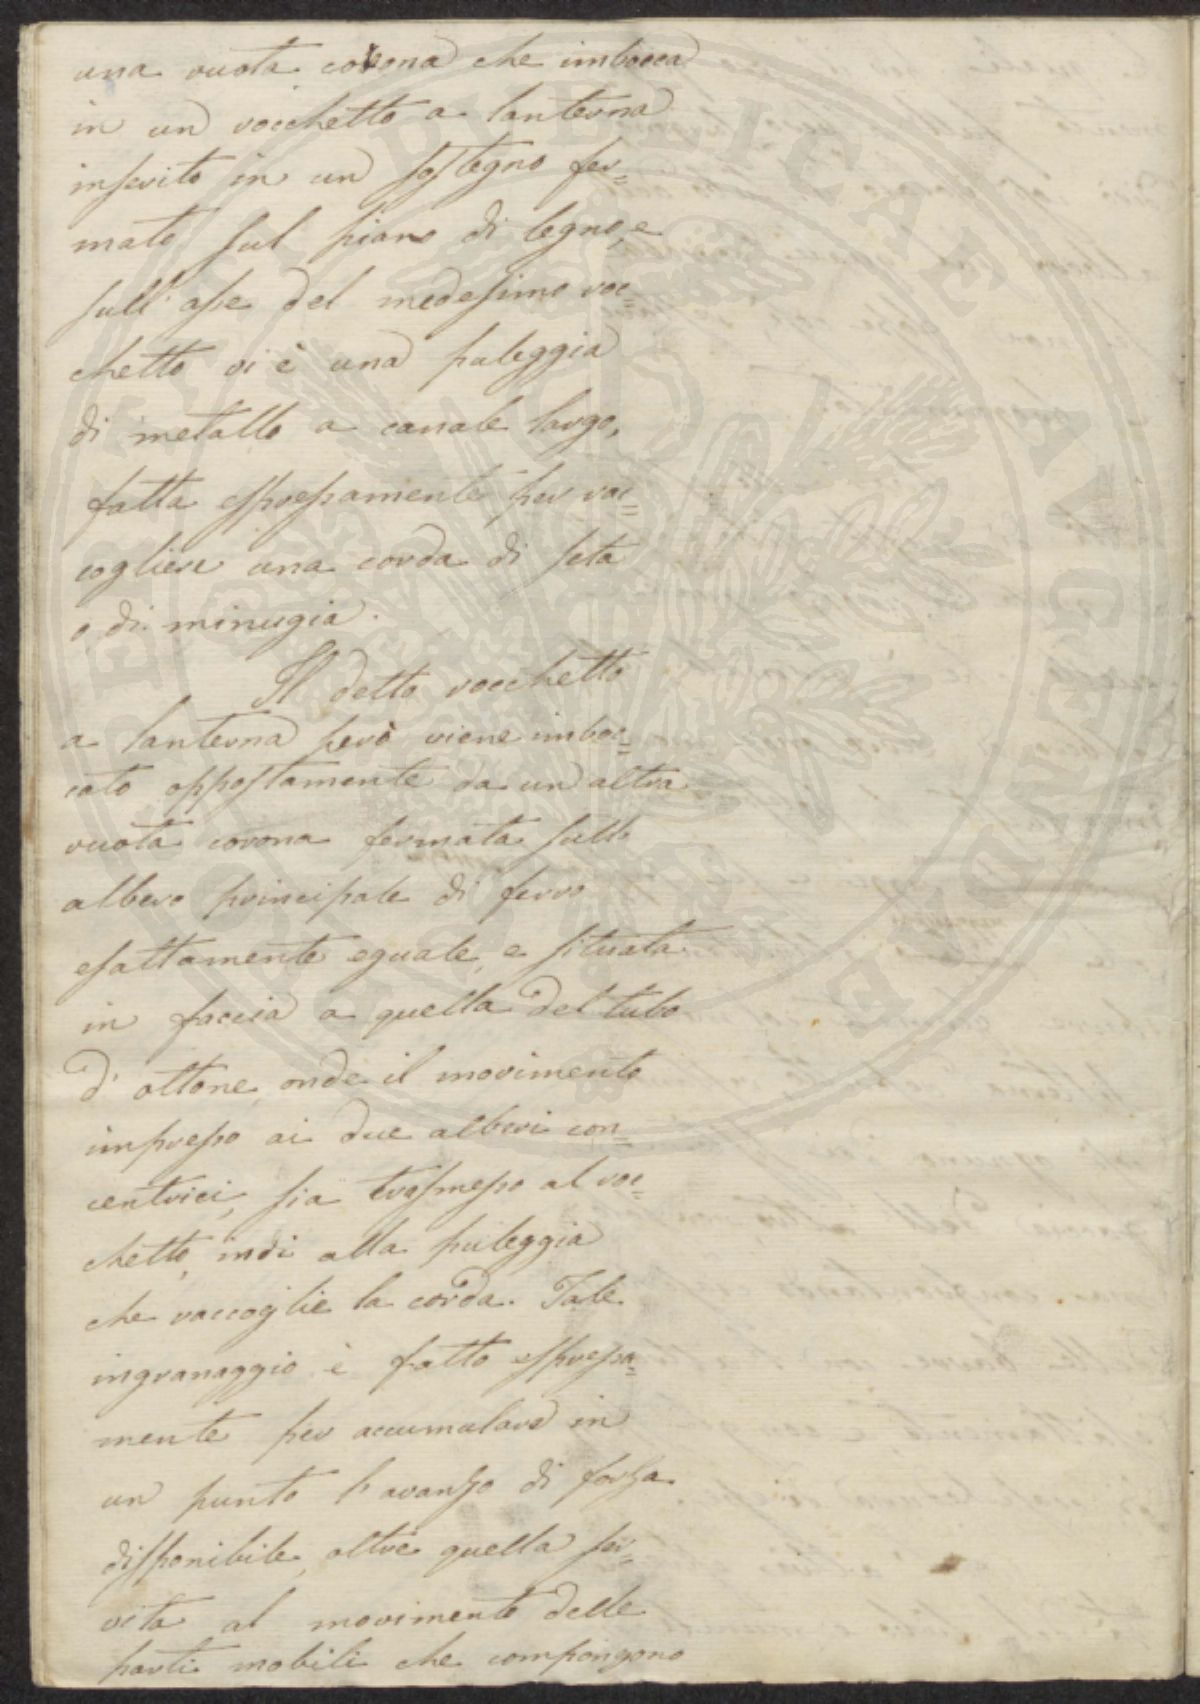 una ruota corona che imbocca
in un rocchetto a lanterna
inserito in un sostegno fer=
mato sul piano di legno, e
sull'asse del medesimo roc=
chetto vi è una puleggia
di metallo a canale largo,
fatta espressamente per rac=
cogliere una corda di seta
o di minugia.
Il detto rocchetto
a lanterna però viene imboc=
cato oppostamente da un altra
ruota corona fermata sull
albero principale di ferro
esattamente eguale, e situata
in faccia a quella del tubo
d'ottone, onde il movimento
impresso ai due alberi con=
centrici, sia trasmesso al roc=
chetto, indi alla puleggia
che raccoglie la corda. Tale
ingranaggio è fatto espressa=
mente per accumulare in
un punto l'avanzo di forza
disponibile, oltre quella ser=
vita al movimento delle
parti mobili che compongono